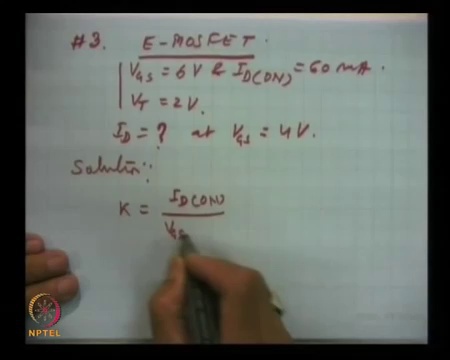 #3. E-MOSFET.
V_GS = 6 V & I_D(ON) = 60 mA.
V_T = 2 V.
I_D = ? at V_GS = 4 V.
Solution:
K = I_D(ON)
V_GS
NPTEL